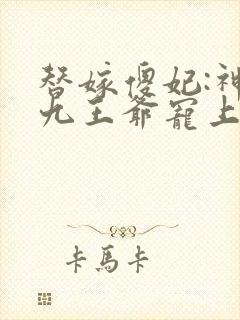 替嫁傻妃:神
九王爷宠上
卡馬卡